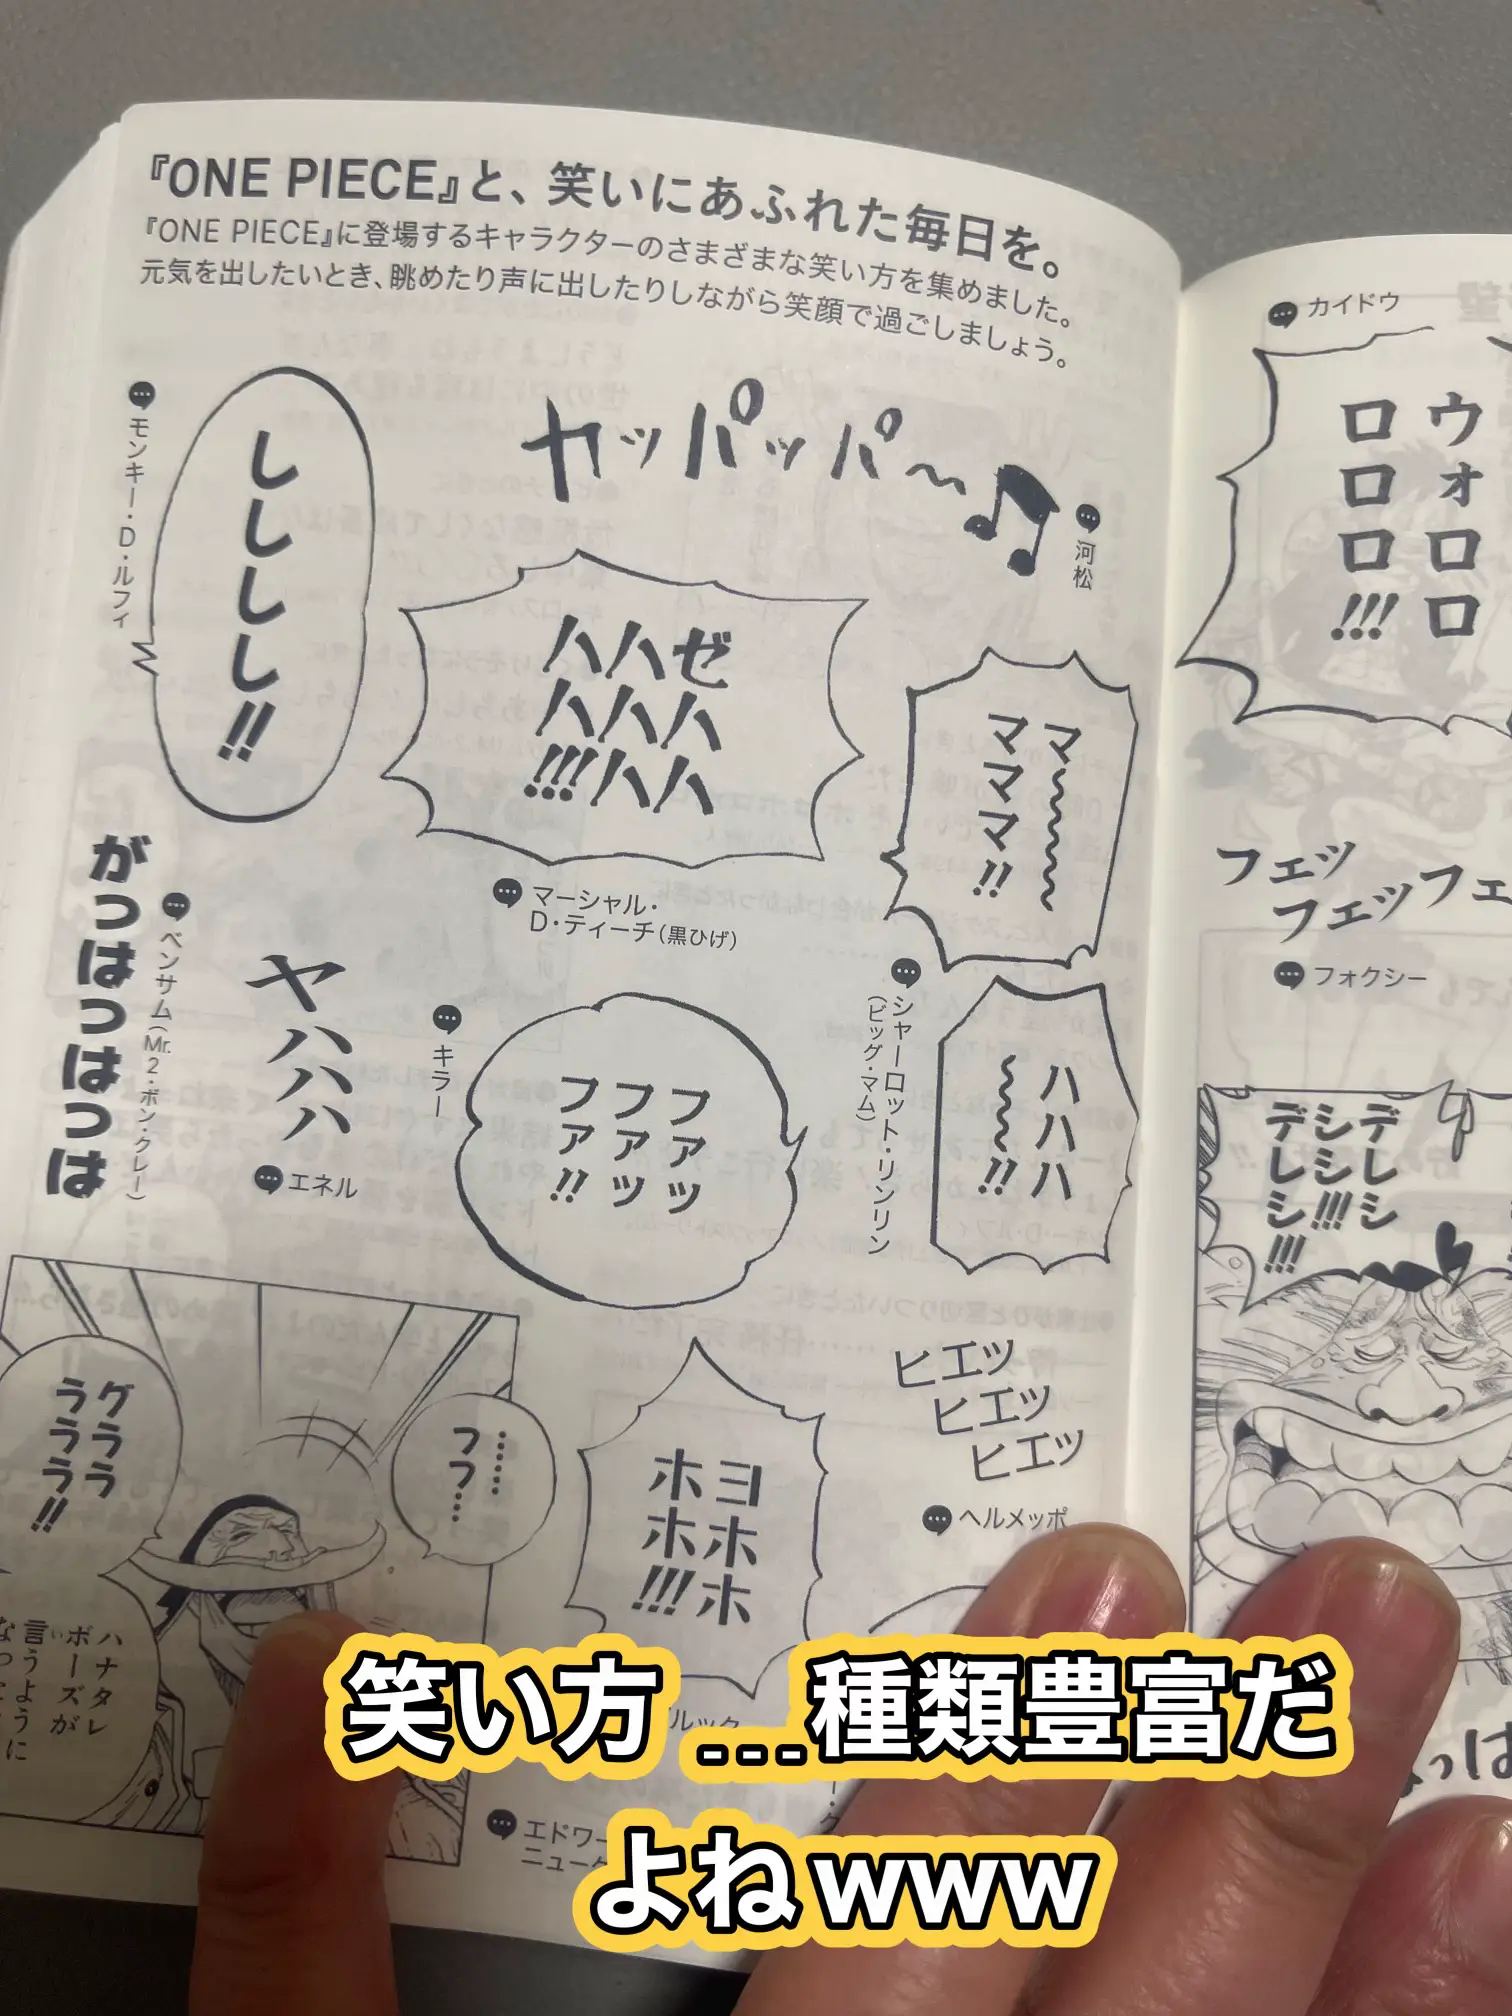 『ONE PIECE』と、笑いにあふれた毎日を。
『ONE PIECE』に登場するキャラクターのさまざまな笑い方を集めました。
元気を出したいとき、眺めたり声に出したりしながら笑顔で過ごしましょう。
モンキー・D・ルフィ
しししし!!
ヤッパッパ〜♪
河松
ゼハハ
ハハハ
ハハ!!!
マーシャル・
D・ティーチ（黒ひげ）
マ〜〜〜〜
ママママ!!
ハハハ
〜〜〜!!
シャーロット・リンリン
（ビッグ・マム）
がっはっはっは
ベンサム（Mr.2・ボン・クレー）
ヤハハハ
エネル
キラー
ファッ
ファッ
ファ!!
グララ
ラララ!!
……
フフ…
ハナタレ
ボーズが
言うよう
に
ヨホホ
ホホ!!!
ルック
ヒエッ
ヒエッ
ヒエッ
ヘルメッポ
エドワー
ニューゲ
カイドウ
ウォロロ
ロロロ!!!
フェッ
フェッフェ
フォクシー
デレシ
シシ!!!
デレシ!!!
っは
笑い方...種類豊富だ
よねwww